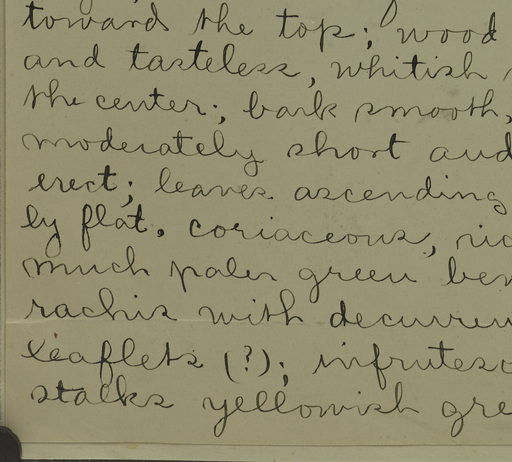 toward the top; wood
and tasteless, whitish
the center; bark smooth,
moderately short and
erect; leaves ascending
ly flat, coriaceous, ric
much paler green ben
rachis with decurren
leaflets (?); infrutesc
stalks yellowish gre